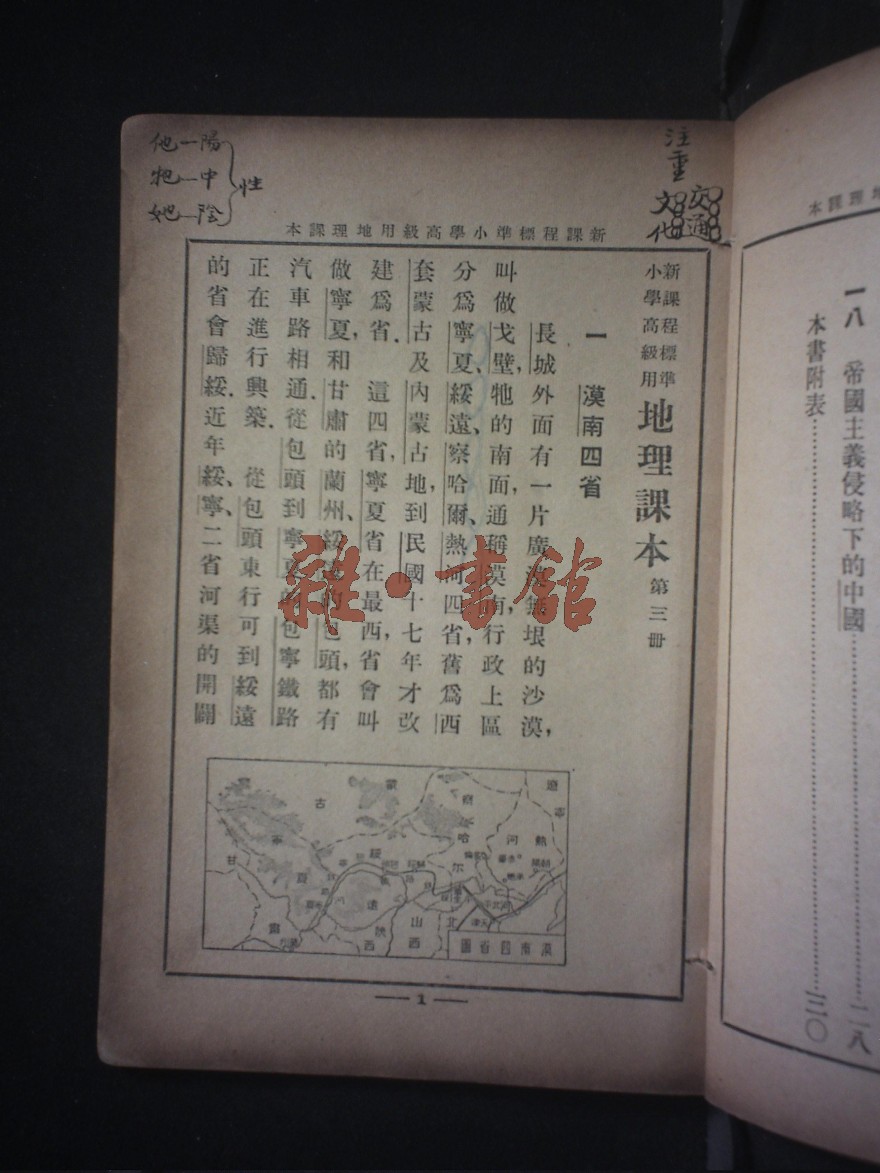 他—陽
牠—中
她—陰
性
注重
交通
文化
新課程標準小學高級用地理課本
新課程標準
小學高級用
地理課本 第三冊
一 漠南四省
長城外面有一片廣漠無垠的沙漠，
叫做戈壁，牠的南面，通稱漠南，行政上區
分為寧夏、綏遠、察哈爾、熱河四省，舊為西
套蒙古及內蒙古地，到民國十七年才改
建為省．　這四省，寧夏省在最西，省會叫
做寧夏，和甘肅的蘭州、綏遠的包頭，都有
汽車路相通．從包頭到寧夏的包寧鐵路
正在進行興築．　從包頭東行可到綏遠
的省會歸綏．近年綏、寧、二省河渠的開闢
漠南四省圖
1
一八　帝國主義侵略下的中國……二八
本書附表……三〇
雜·書館